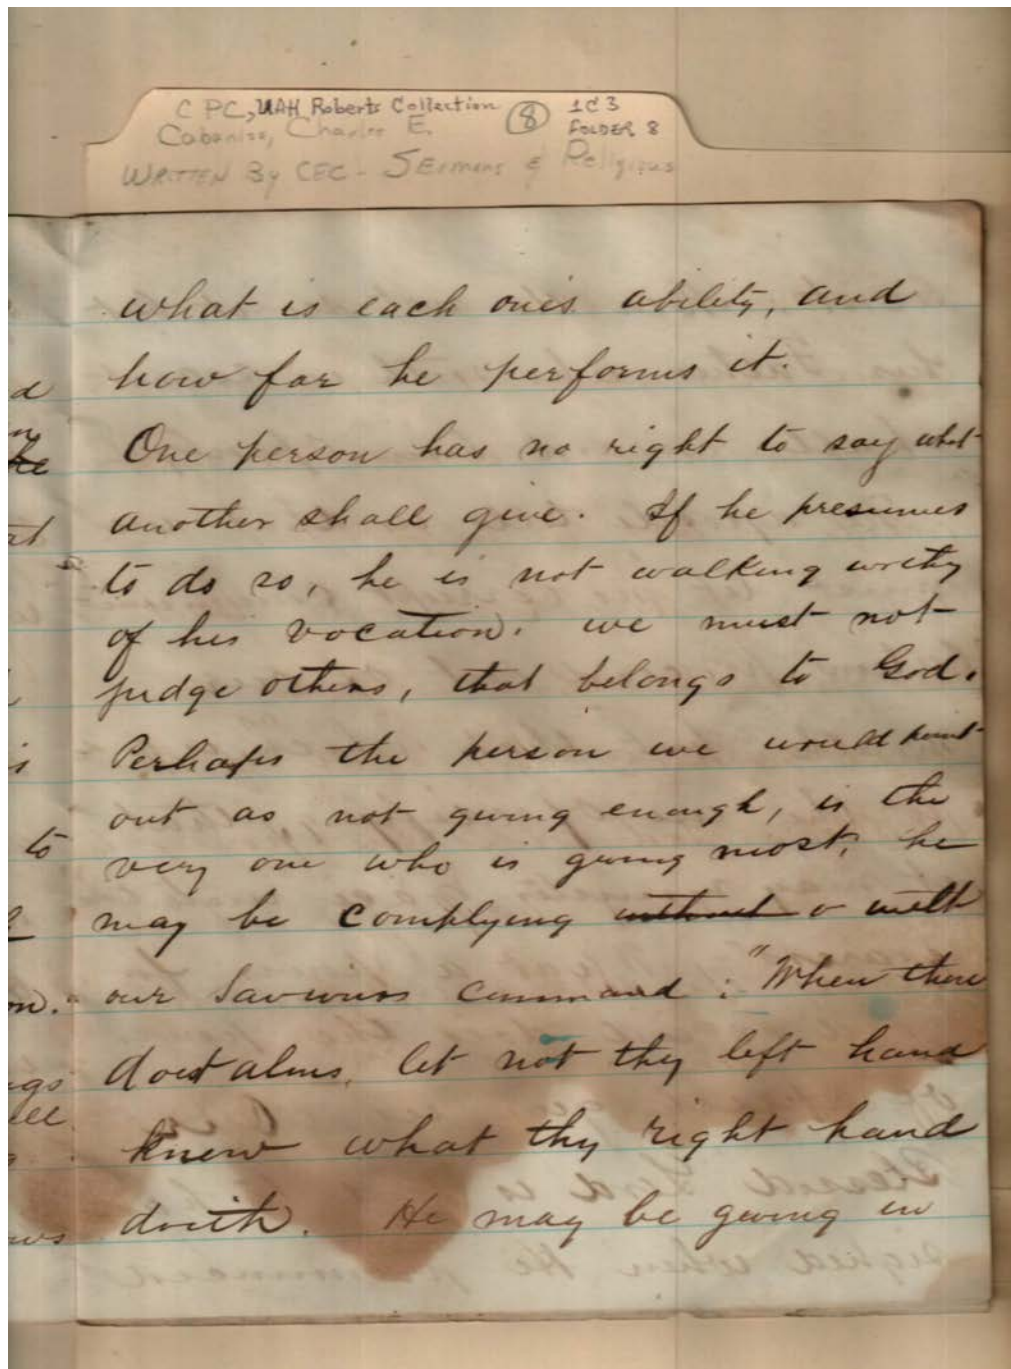 C PC, UAH Roberts Collection (8) 1C3
Cabaniss, Charles E. FOLDER 8
WRITTEN By CEC - SErmons & Religious
what is each one's ability, and
how far he performs it.
One person has no right to say what
another shall give. If he presumes
to do so, he is not walking worthy
of his vocation. we must not
judge others, that belongs to God.
Perhaps the person we would point
out as not giving enough, is the
very one who is giving most, he
may be complying without with
our Saviours command: "When thou
doest alms, let not thy left hand
know what thy right hand
doeth. He may be giving in